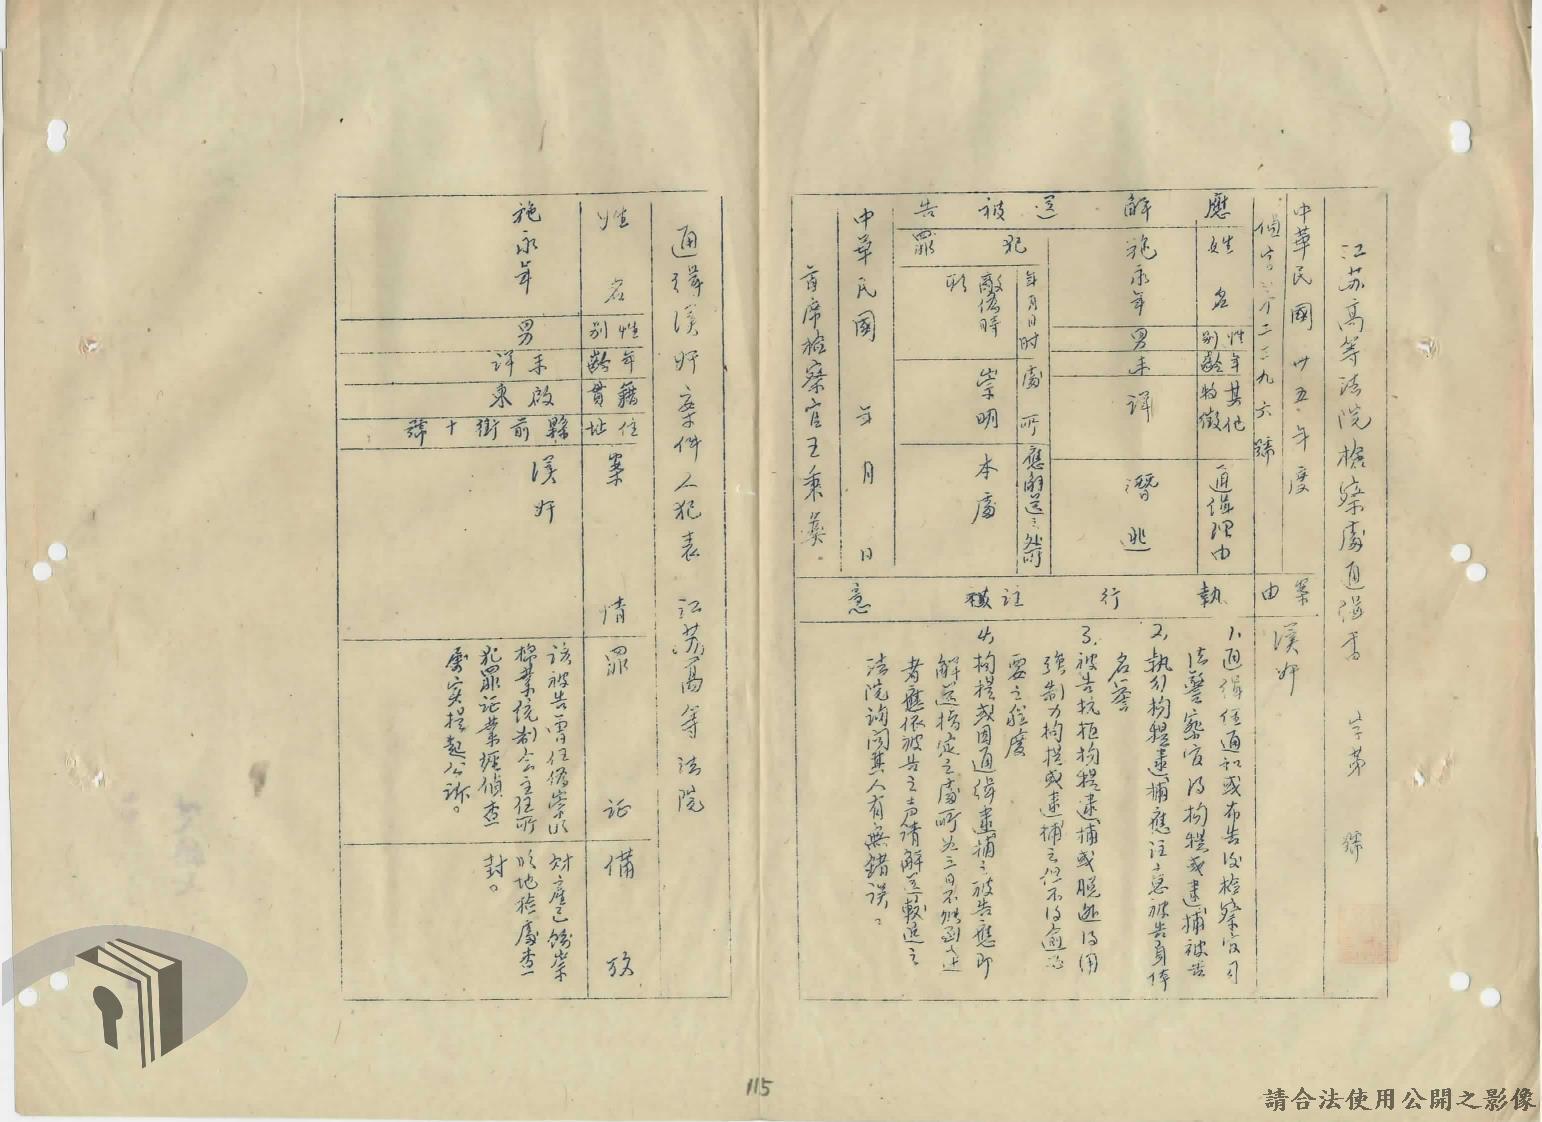 江苏高等法院檢察處通緝書　字第　號
中華民國卅五年度
偵字第二三九六號
案由
漢奸
應解送被告
姓名
性別
年齡
其他特徵
通緝理由
施永年
男
未詳
潛逃
犯罪
年月日时
處所
應解送之处所
敵偽時
崇明
本處
中華民國　年　月　日
首席检察官王秉彝
執行註意
1.通緝經通知或布告後检察官司
法警察官得拘提或逮捕被告
2.執行拘提逮捕應注意被告身体
名譽
3.被告抗拒拘提逮捕或脱逃得用
強制力拘提或逮捕之但不得逾必
要之程度
4.拘提或因通緝逮捕之被告應即
解送指定之處所如三日不能到達
者應依被告之声請解送較近之
法院詢問其人有無錯誤。
通緝漢奸案件人犯表　江苏高等法院
姓名
性別
年齡
籍貫
住址
案情
罪证
備攷
施永年
男
未详
啟東
縣前街十號
漢奸
该被告曾任偽崇明
棉業统制会主任所
犯罪证業經偵查
屬实提起公诉。
财產已飭崇
明地检處查
封。
115
請合法使用公開之影像